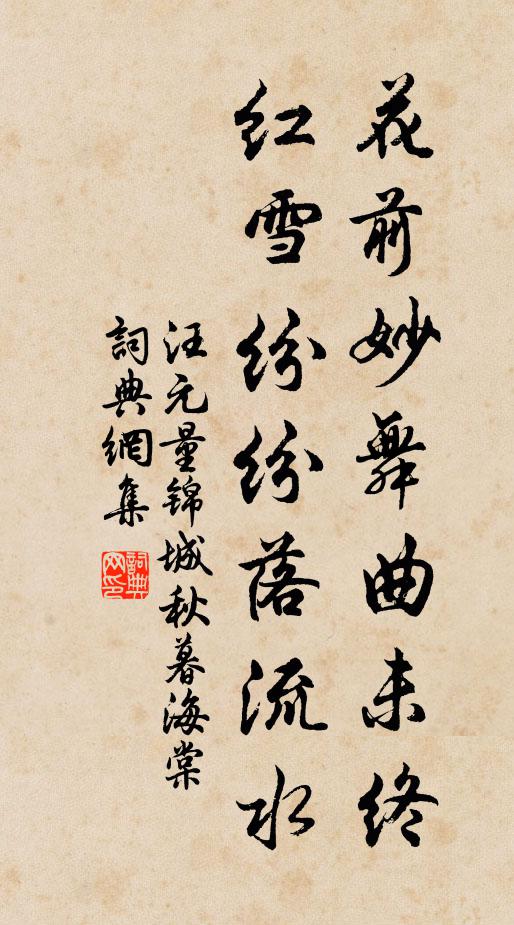 花前妙舞曲未終
紅雪紛紛落流水
汪元量錦城秋暮海棠
詞典網集
詞典网印